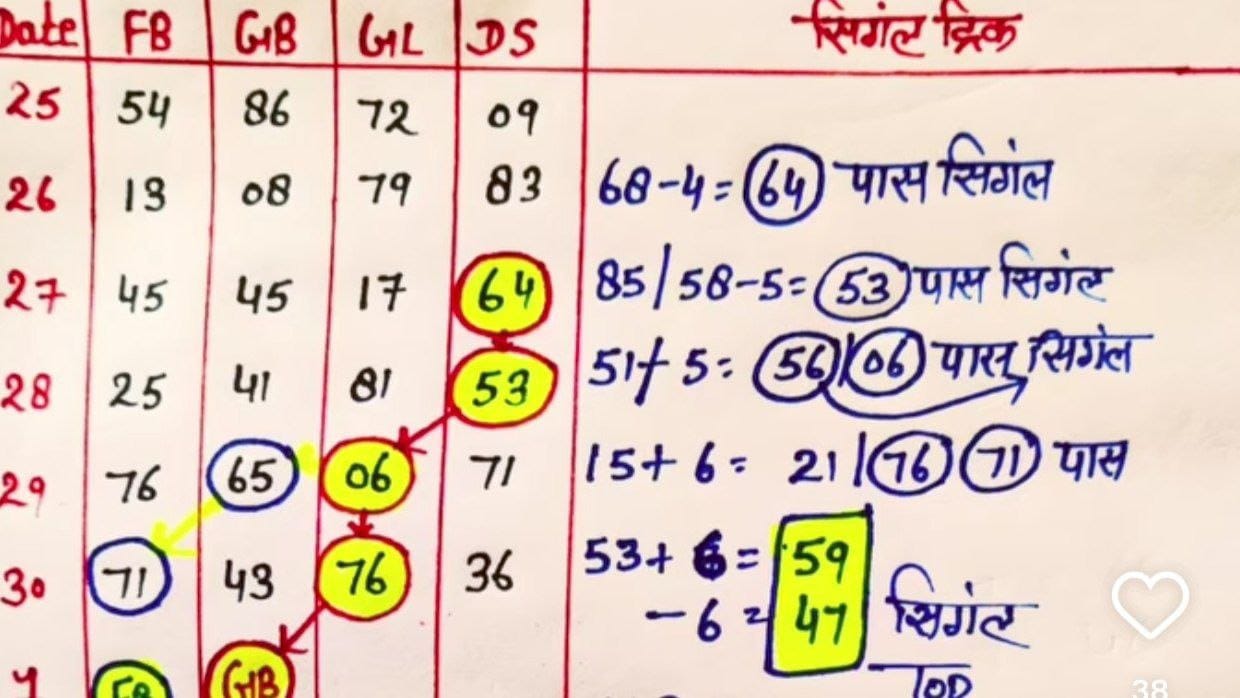 Date FB GB GL DS सिगंल ट्रिक
25 54 86 72 09
26 13 08 79 83 68-4= 64 पास सिगंल
27 45 45 17 64 85/58-5= 53 पास सिगंल
28 25 41 81 53 51+5= 56/06 पास सिगंल
29 76 65 06 71 15+6= 21/76 71 पास
30 71 43 76 36 53+6= 59
-6= 47 सिगंल
1 FB GB TOP
38